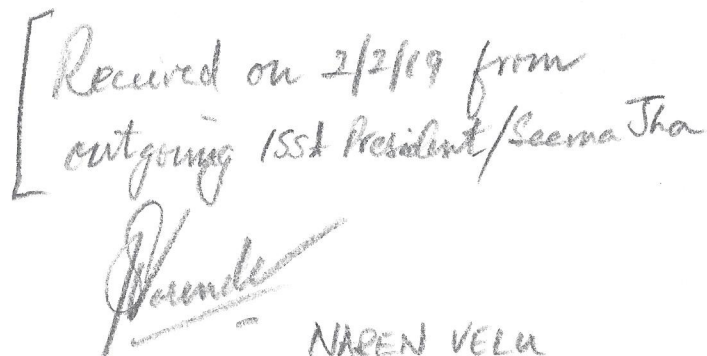 Received on 2/2/19 from
outgoing ISSA President/Seema Jha
Narender
NAREN VELU